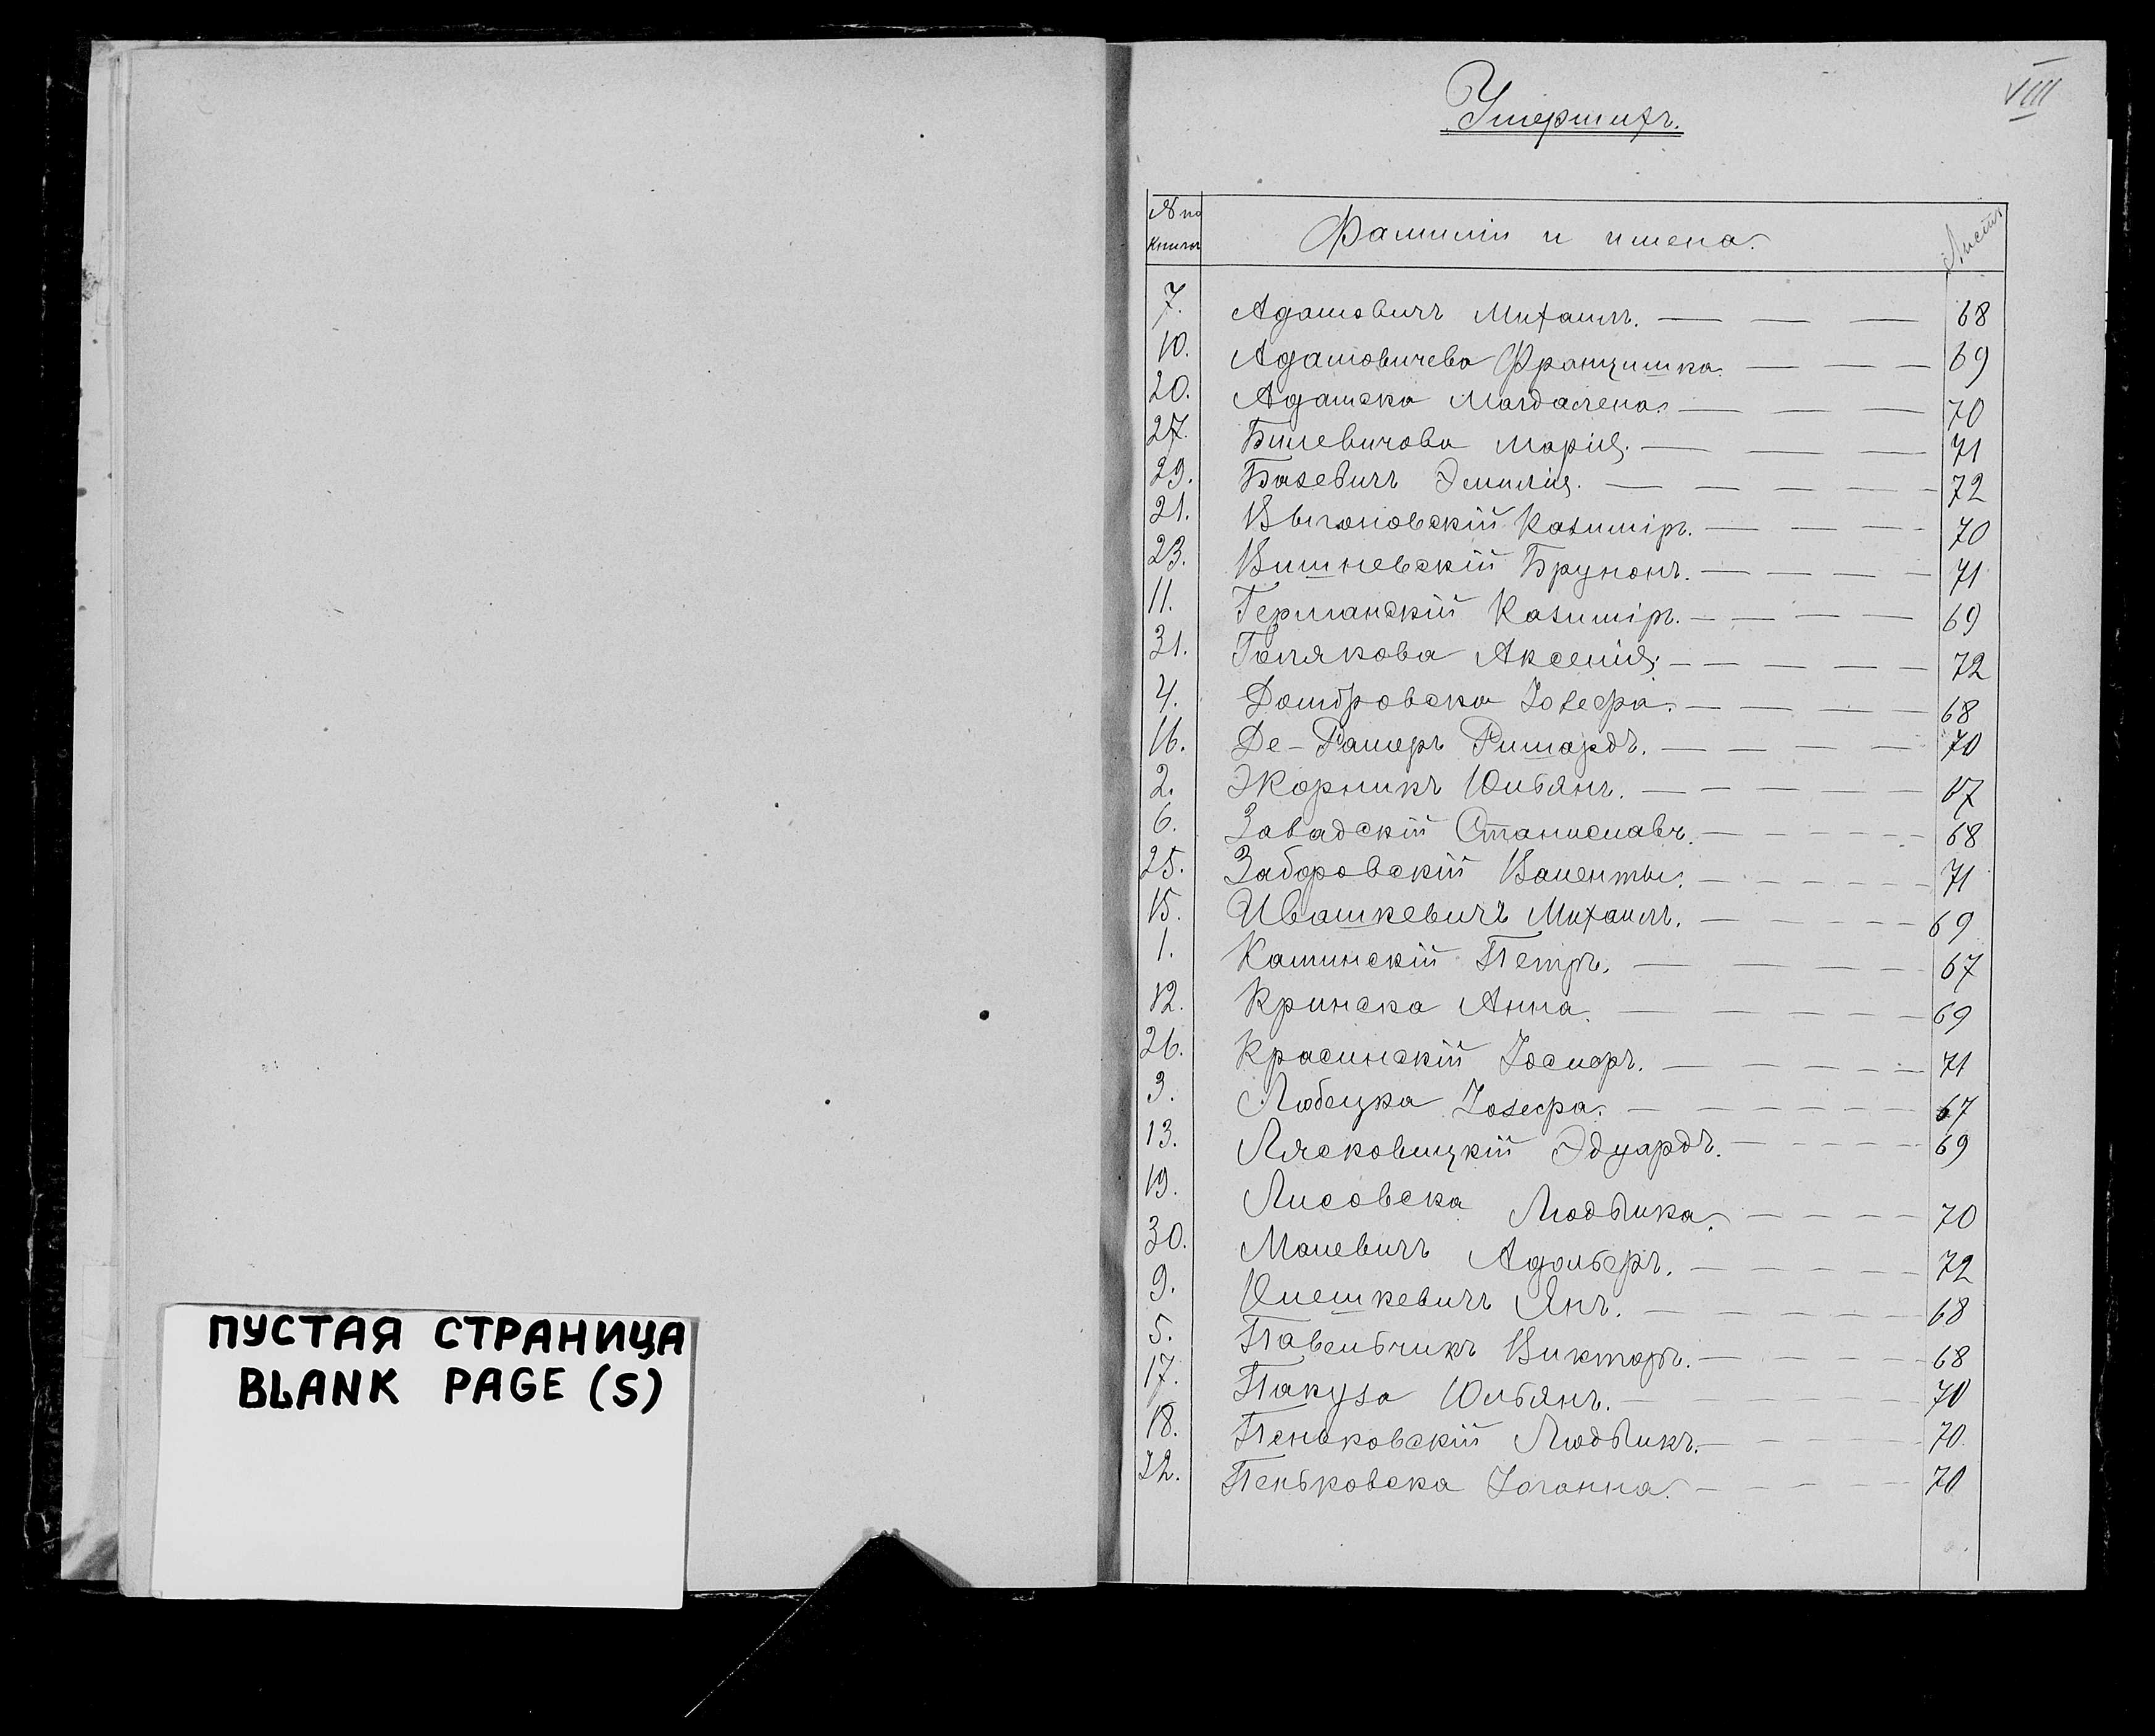 ПУСТАЯ СТРАНИЦА
BLANK PAGE (S)
VIII
Умершихъ.
№ по книгѣ Фамиліи и имена. Листы
7. Адамовичъ Михаилъ. — — — 68
10. Адамовичева Францишка. — — — 69
20. Адамска Магдалена. — — — 70
27. Билевичова Марія. — — — 71
29. Базевичъ Эмилія. — — — — — 72
21. Выгоновскій Казиміръ. — — — — 70
23. Вишневскій Брунонъ. — — — — 71
11. Германскій Казиміръ. — — — — 69
31. Голякова Аксенія. — — — — — 72
4. Домбровска Іозефа. — — — — 68
16. Де-Рамеръ Ришардъ. — — — — 70
2. Жорникъ Юльянъ. — — — — — 67
6. Завадскій Станиславъ. — — — — — 68
25. Заборовскій Валенты. — — — — — 71
15. Ивашкевичъ Михаилъ. — — — — — 69
1. Каминскій Петръ. — — — — 67
12. Кринска Анна. — — — — — 69
26. Красинскій Іосифъ. — — — — — 71
3. Любецка Іозефа. — — — — — — 67
13. Лясковицкій Эдуардъ. — — — — — 69
19. Лисовска Людвика. — — — — 70
30. Малевичъ Адольфъ. — — — — — 72
9. Олешкевичъ Янъ. — — — — — 68
5. Павельчикъ Викторъ. — — — — 68
17. Пакуза Юльянъ. — — — — — 70
18. Пеньковскій Людвикъ. — — — — 70
22. Пеньковска Іоганна. — — — — 70